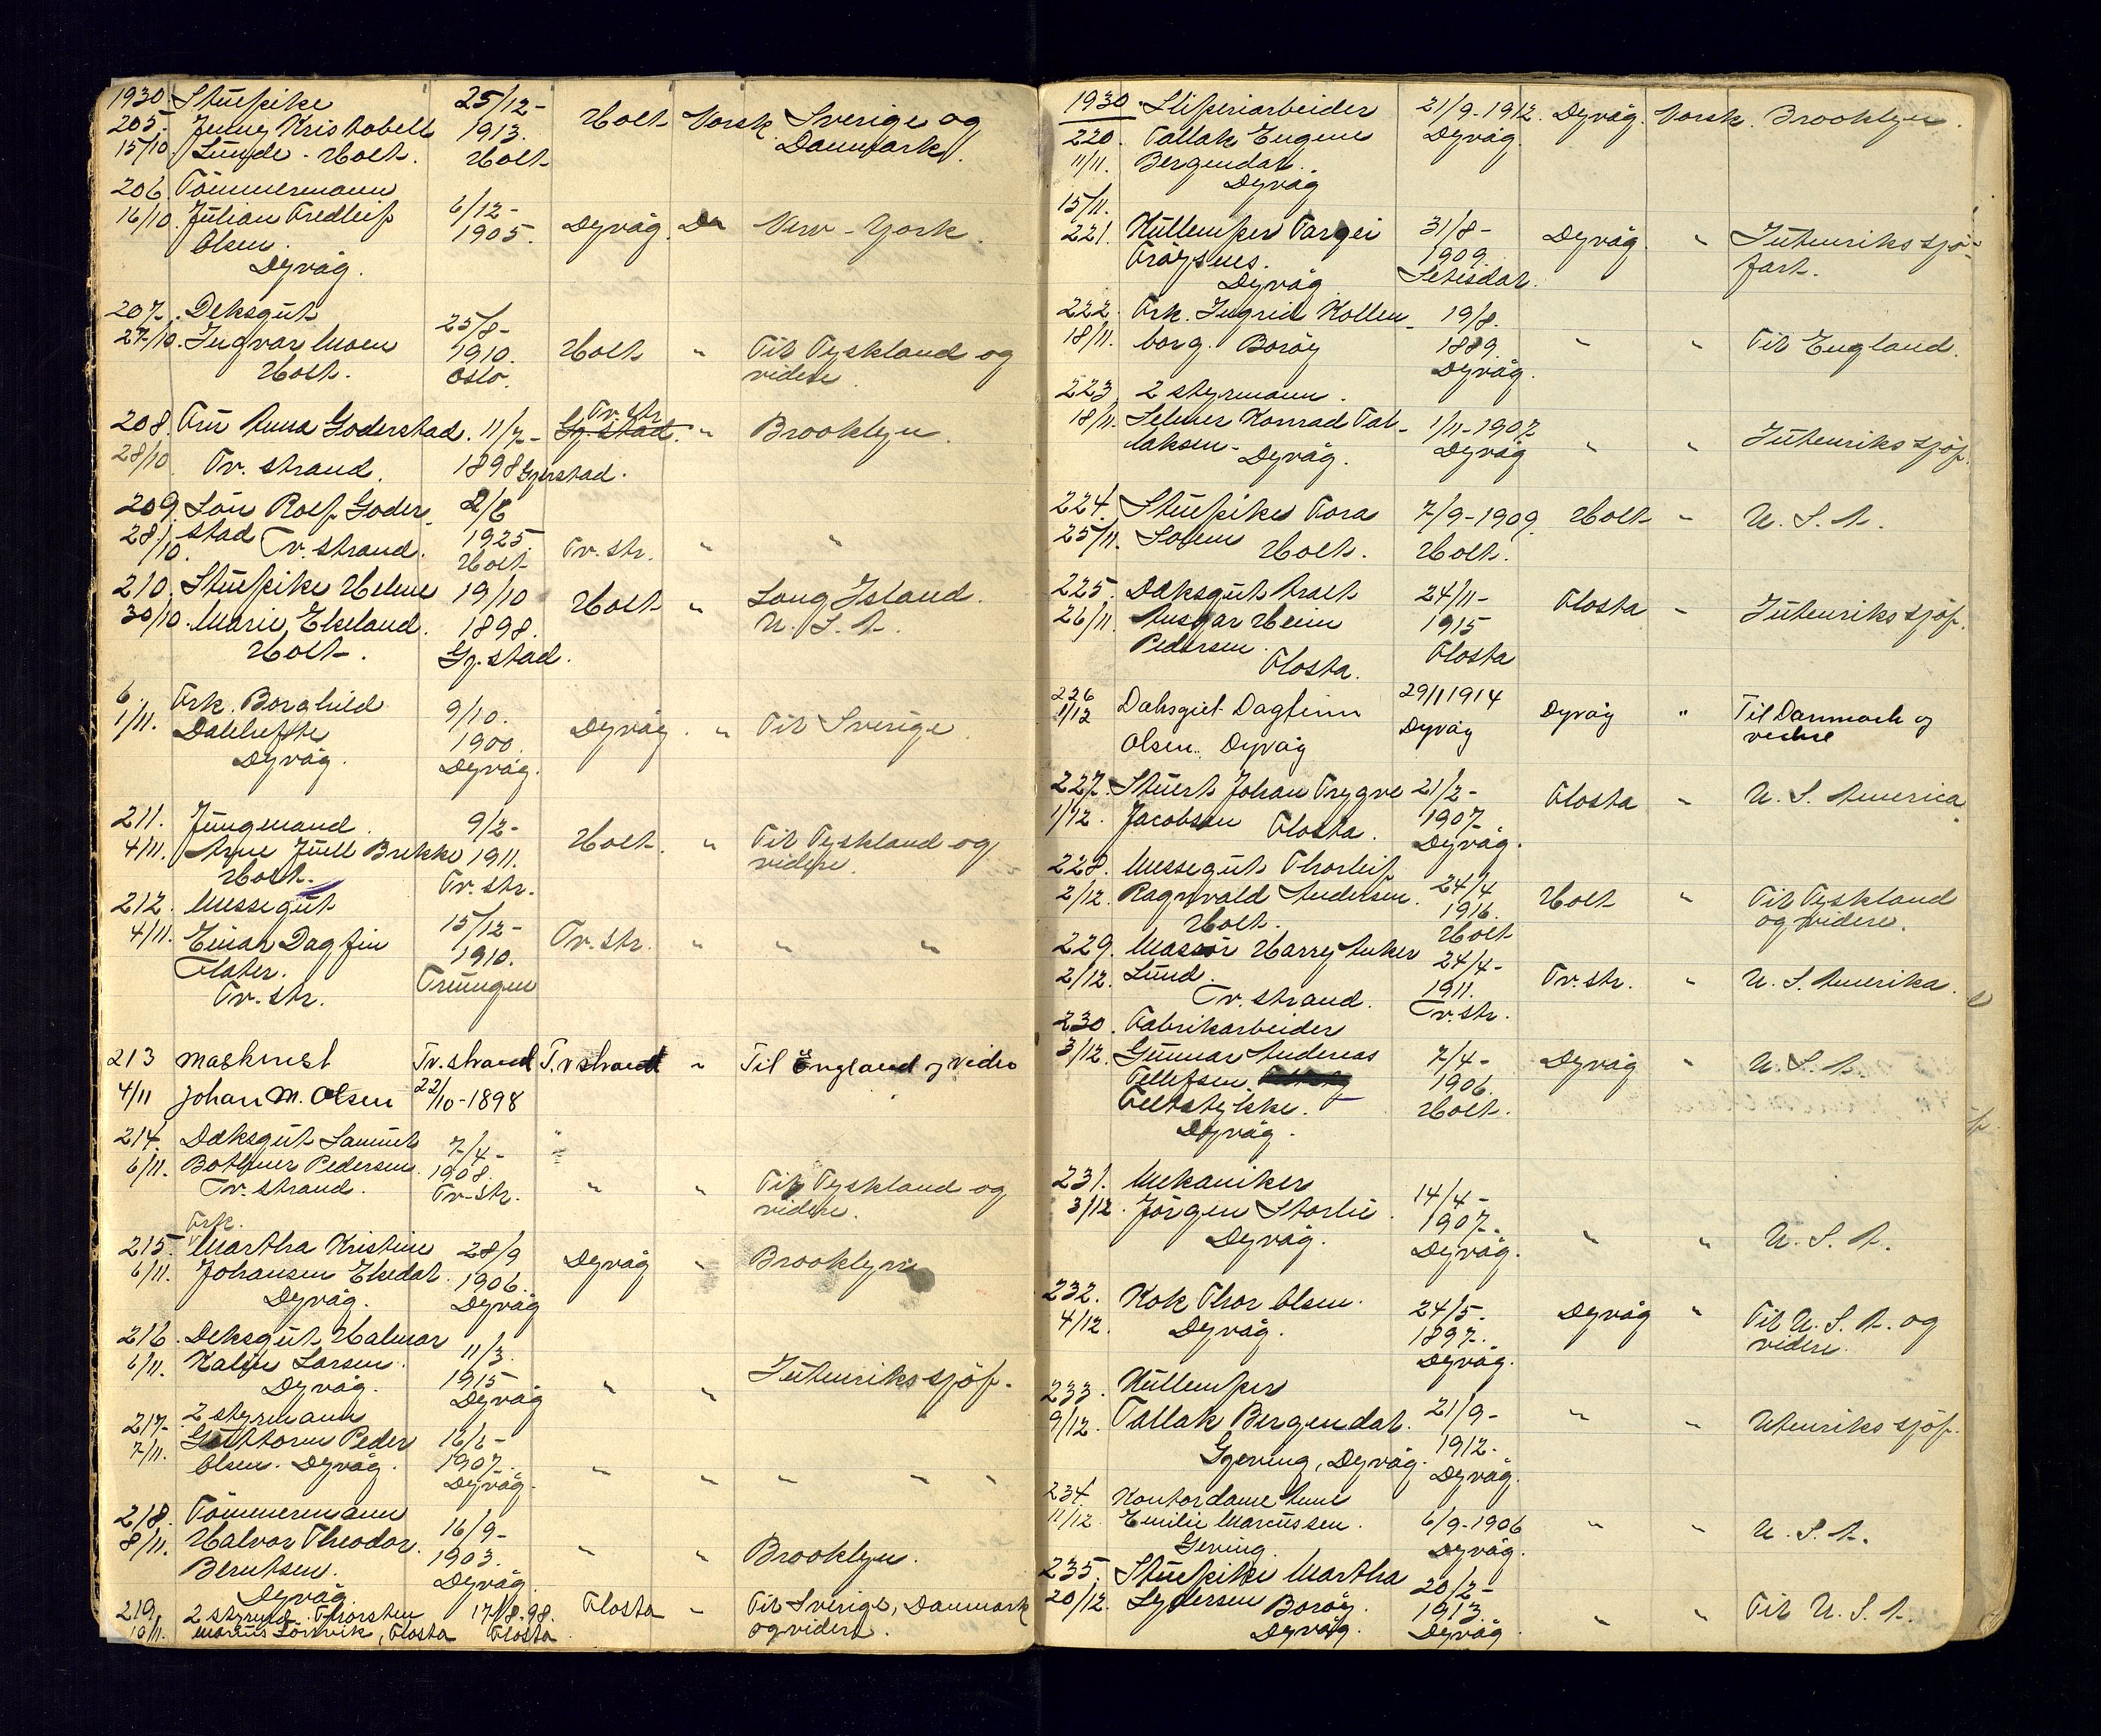 1930 Stuepike 25/12-
205. Jenny Kristabell 1913. Holt Norsk Sverige og
15/10 Lunde - Holt. Holt Danmark.
206 Tömmermann
16/10. Julian Fredleif 6/12- Dyvåg. Do New-York.
Olsen. 1905.
Dyvåg.
207. Deksgut 25/8-
27/10. Ingvar Moen 1910. Holt " Til Tyskland og
Holt. Oslo. videre.
208. Fru Anna Goderstad. 11/7- Tv. str. Gj. stad. " Brooklyn.
28/10 Tv. strand. 1898 Gjerstad.
209. Sön Rolf Goder- 2/6
28/10. stad Tv. strand. 1925 Tv. str. " "
Holt
210. Stuepike Helene 19/10 Holt " Long Island.
30/10. Marie Ekeland. 1898. U. S. A.
Holt. Gj. stad.
6. Frk. Borghild 9/10.
1/11. Dalehefte 1900. Dyvåg. " Til Sverige.
Dyvåg. Dyvåg.
211. Jungmand. 9/2-
4/11. Arne Juell Brekke 1911. Holt. " Til Tyskland og
Holt. Tv. str. videre.
212. Messegut 15/12-
4/11. Einar Dagfin 1910. Tv. str. " " "
Flater. Treungen
Tv. str.
213 Maskinist Tv. strand T. v strand " Til England og videre
4/11 Johan M. Olsen 22/10-1898
214. Deksgut Samuel 7/4- "
6/11. Bothner Pedersen 1908. " " Til Tyskland og
Tv. strand. Tv. str. videre.
Frk.
215. Martha Kristine 28/9 Dyvåg " Brooklyn
6/11. Johansen Ekedal. 1906.
Dyvåg. Dyvåg
216. Deksgut Halmar 11/3.
6/11. Larsen. 1915 " " Utenriks sjöf.
Dyvåg. Dyvåg
217. 2 styrmann
7/11. Guttorm Peder 16/6-
Olsen. Dyvåg. 1907. " " " " "
Dyvåg.
218. Tömmermann 16/9-
8/11. Halvor Theodor 1903. " " Brooklyn.
Berntsen. Dyvåg.
Dyvåg.
219. 2 styrmd. Thorsten 17/8-98. Flosta " Til Sverige, Danmark
10/11. Marius Sörvik, Flosta Flosta og videre.
1930. Sliperiarbeider 21/9-1912. Dyvåg. Norsk. Brooklyn.
220. Tallak Eugene Dyvåg.
11/11. Bergendal.
Dyvåg
15/11.
221. Hullemper Targei 31/8- Dyvåg. " Utenriks sjö-
Fröysnes. 1909. fart.
Dyvåg. Setesdal.
222. Frk. Ingrid Kallen- 19/8.
18/11. borg. Boröy 1889. " " Til England.
Dyvåg.
223. 2 styrmann.
18/11. Selmer Konrad Tal- 1/11-1907 " " Utenriks sjöf.
laksen - Dyvåg. Dyvåg
224. Stuepike Tora 7/9-1909. Holt " U. S. A.
25/11. Holt. Holt.
225. Deksgut Aralt 24/11- Flosta " Utenriks sjöf.
26/11. Ansgar Heim 1915
Pedersen. Flosta
Flosta.
226 Daksgut Dagfinn 29/1 1914 Dyvåg " Til Danmark og
1/12 Olsen. Dyvåg Dyvåg videre
227. Stuert Johan Trygve 21/2- Flosta " U. S. America.
1/12. Jacobsen Flosta. 1907.
Dyvåg.
228. Messegut Thorleif
2/12. Ragnvald Andersen. 24/4 Holt " Til Tyskland
Holt. 1916. og videre.
Holt
229. Massör Harry Anker 24/4- Tv. str. " U. S. Amerika.
2/12. Lund. 1911.
Tv. strand. Tv. str.
230. Fabrikarbeider
3/12. Gunnar Andreas 7/4- Dyvåg " U. S. A.
Tellefsen 1906.
Feltstykke. Holt.
Dyvåg.
231. Mekaniker 14/4-
3/12. Jörgen Storlie. 1907. " " U. S. A.
Dyvåg. Dyvåg.
232. Kok Thor Olsen. 24/5. Dyvåg " Til U. S. A. og
4/12. Dyvåg. 1897. videre.
Dyvåg.
233. Hullemper
9/12. Tallak Bergendal. 21/9- " " Utenriks sjöf.
Gjeving, Dyvåg. 1912.
Dyvåg.
234. Kontordame Anne
11/12. Emilie Marcussen. 6/9-1906 " " U. S. A.
Gjeving. Dyvåg.
235. Stuepike Martha 20/2-
20/12. Lydersen Boröy. 1913. " " Til U. S. A.
Dyvåg. Dyvåg